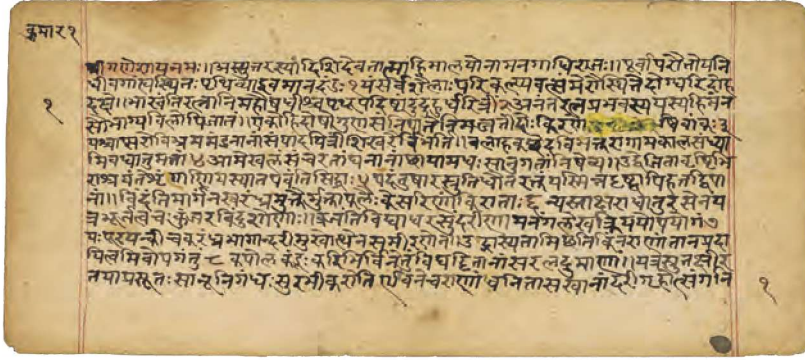 कुमार १
श्रीगणेशायनमः॥अस्त्युत्तरस्यांदिशिदेवतात्माहिमालयोनामनगाधिराजः॥पूर्वापरौतोयनि
धीवगाह्यस्थितःपृथिव्याइवमानदंडः१यंसर्वशैलाःपरिकल्प्यवत्संमेरौस्थितेदोग्धरिदोह
१
दक्षे॥भास्वंतिरत्नानिमहौषधीश्चपृथूपदिष्टांदुदुहुर्धरित्रीं२अनंतरत्नप्रभवस्ययस्यहिमंन
सौभाग्यविलोपिजातं॥एकोहिदोषोगुणसंनिपातेनिमज्जतींदोःकिरणे षिवांकः३
यश्चाप्सरोविभ्रममंडनानांसंपादयित्रींशिखरैर्बिभर्ति॥बलाहकछेदविभक्तरागामकालसंध्या
मिवधातुमत्तां४आमेखलंसंचरतांघनानांछायामधःसानुगतांनिषेव्य॥उद्वेजितावृष्टिभि
राश्रयंतेशृंगाणियस्यातपवंतिसिद्धाः५पदंतुषारस्रुतिधौतरक्तंयस्मिन्नदृष्ट्वापिहतद्विपा
नां॥विदंतिमार्गंनखरंध्रमुक्तैर्मुक्ताफलैःकेसरिणांकिराताः६न्यस्ताक्षराधातुरसेनय
त्रभूर्जत्वचःकुंजरबिंदुशोणाः॥व्रजंतिविद्याधरसुंदरीणामनंगलेखक्रिययोपयोगं७
यःपूरयन्कीचकरंध्रभागान्दरीमुखोत्थेनसमीरणेन॥उद्गास्यतामिछतिकिंनराणांतानप्रदा
यित्वमिवोपगंतुं८कपोलकंडूःकरिभिर्विनेतुंविघट्टितानांसरलद्रुमाणां॥यत्रस्रुतक्षीर
तयाप्रसूतःसानूनिगंधःसुरभीकरोति९वनेचराणांवनितासखानांदरीगृहोत्संगनि
१